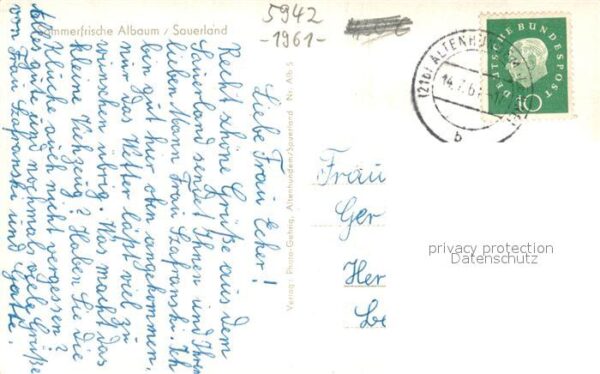 5942
-1961-
Sommerfrische Albaum / Sauerland
Liebe Frau Echer!
Recht schöne Grüße aus dem
Sauerland sendet Ihnen und Ihrem
lieben Mann Frau Szafranski. Ich
bin gut hier oben angekommen,
nur das Wetter läßt viel zu
wünschen übrig. Was macht das
kleine Viehzeug? Haben Sie die
Küche auch nicht vergessen?
Alles gute und nochmals viele Grüße
von Frau Szafranski und Gatte.
Verlag: Photo-Gehrig, Altenhundem/Sauerland Nr. Alb 5
(21b) ALTENHU
14.7.61
b
DEUTSCHE BUNDESPOST
10
Frau
Ger
Her
Le
privacy protection
Datenschutz